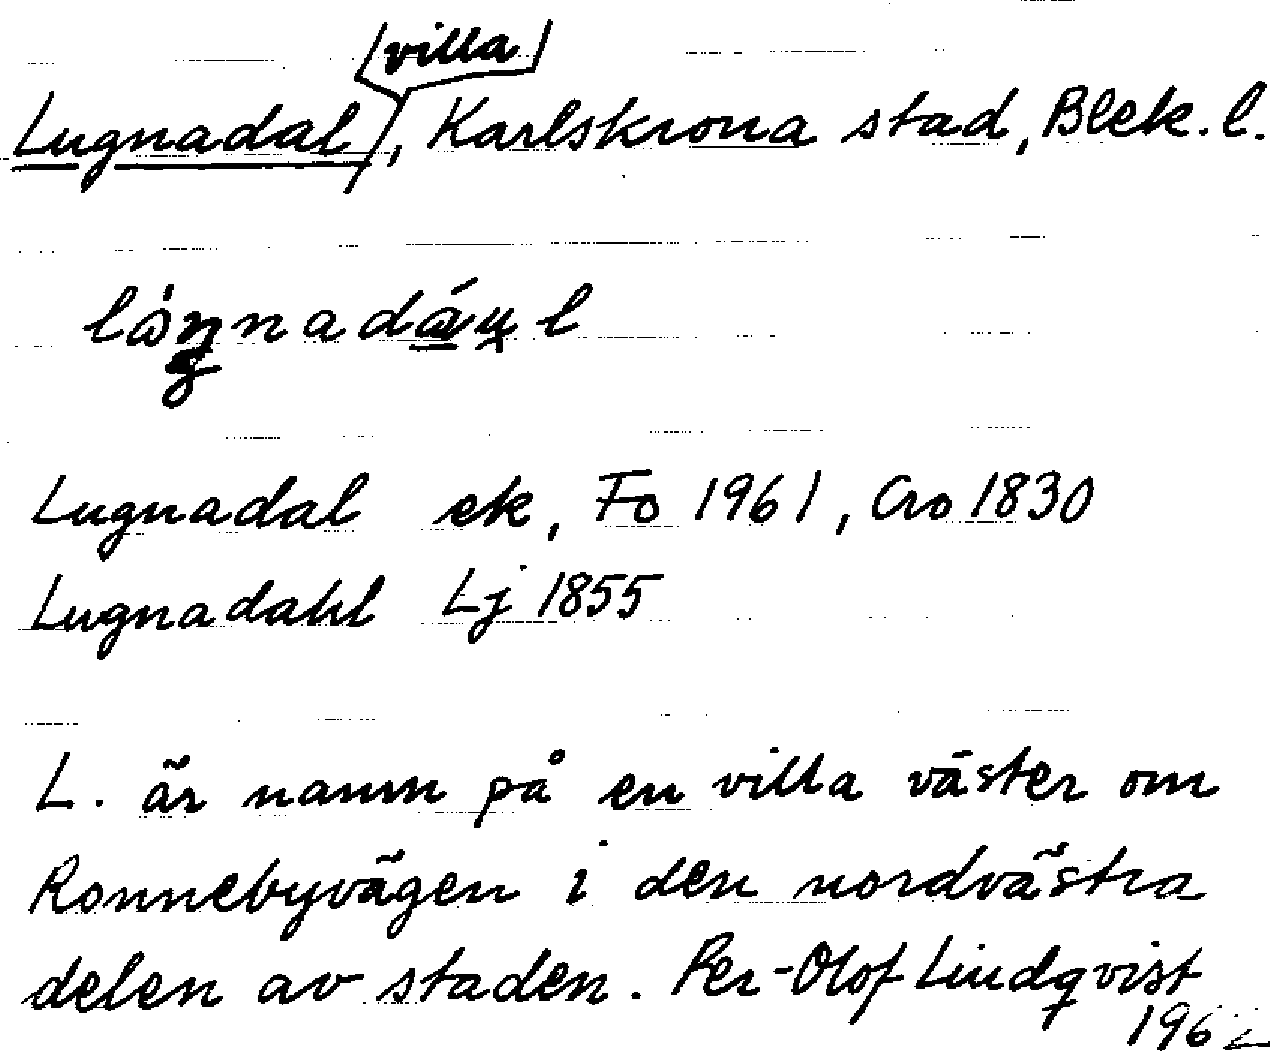 Lugnadal, villa, Karlskrona stad, Blek. l.
Lugnadal ek, Fo 1961, Cro 1830
Lugnadahl Lj 1855
L. är namn på en villa väster om
Ronnebyvägen i den nordvästra
delen av staden. Per-Olof Lindqvist
1962